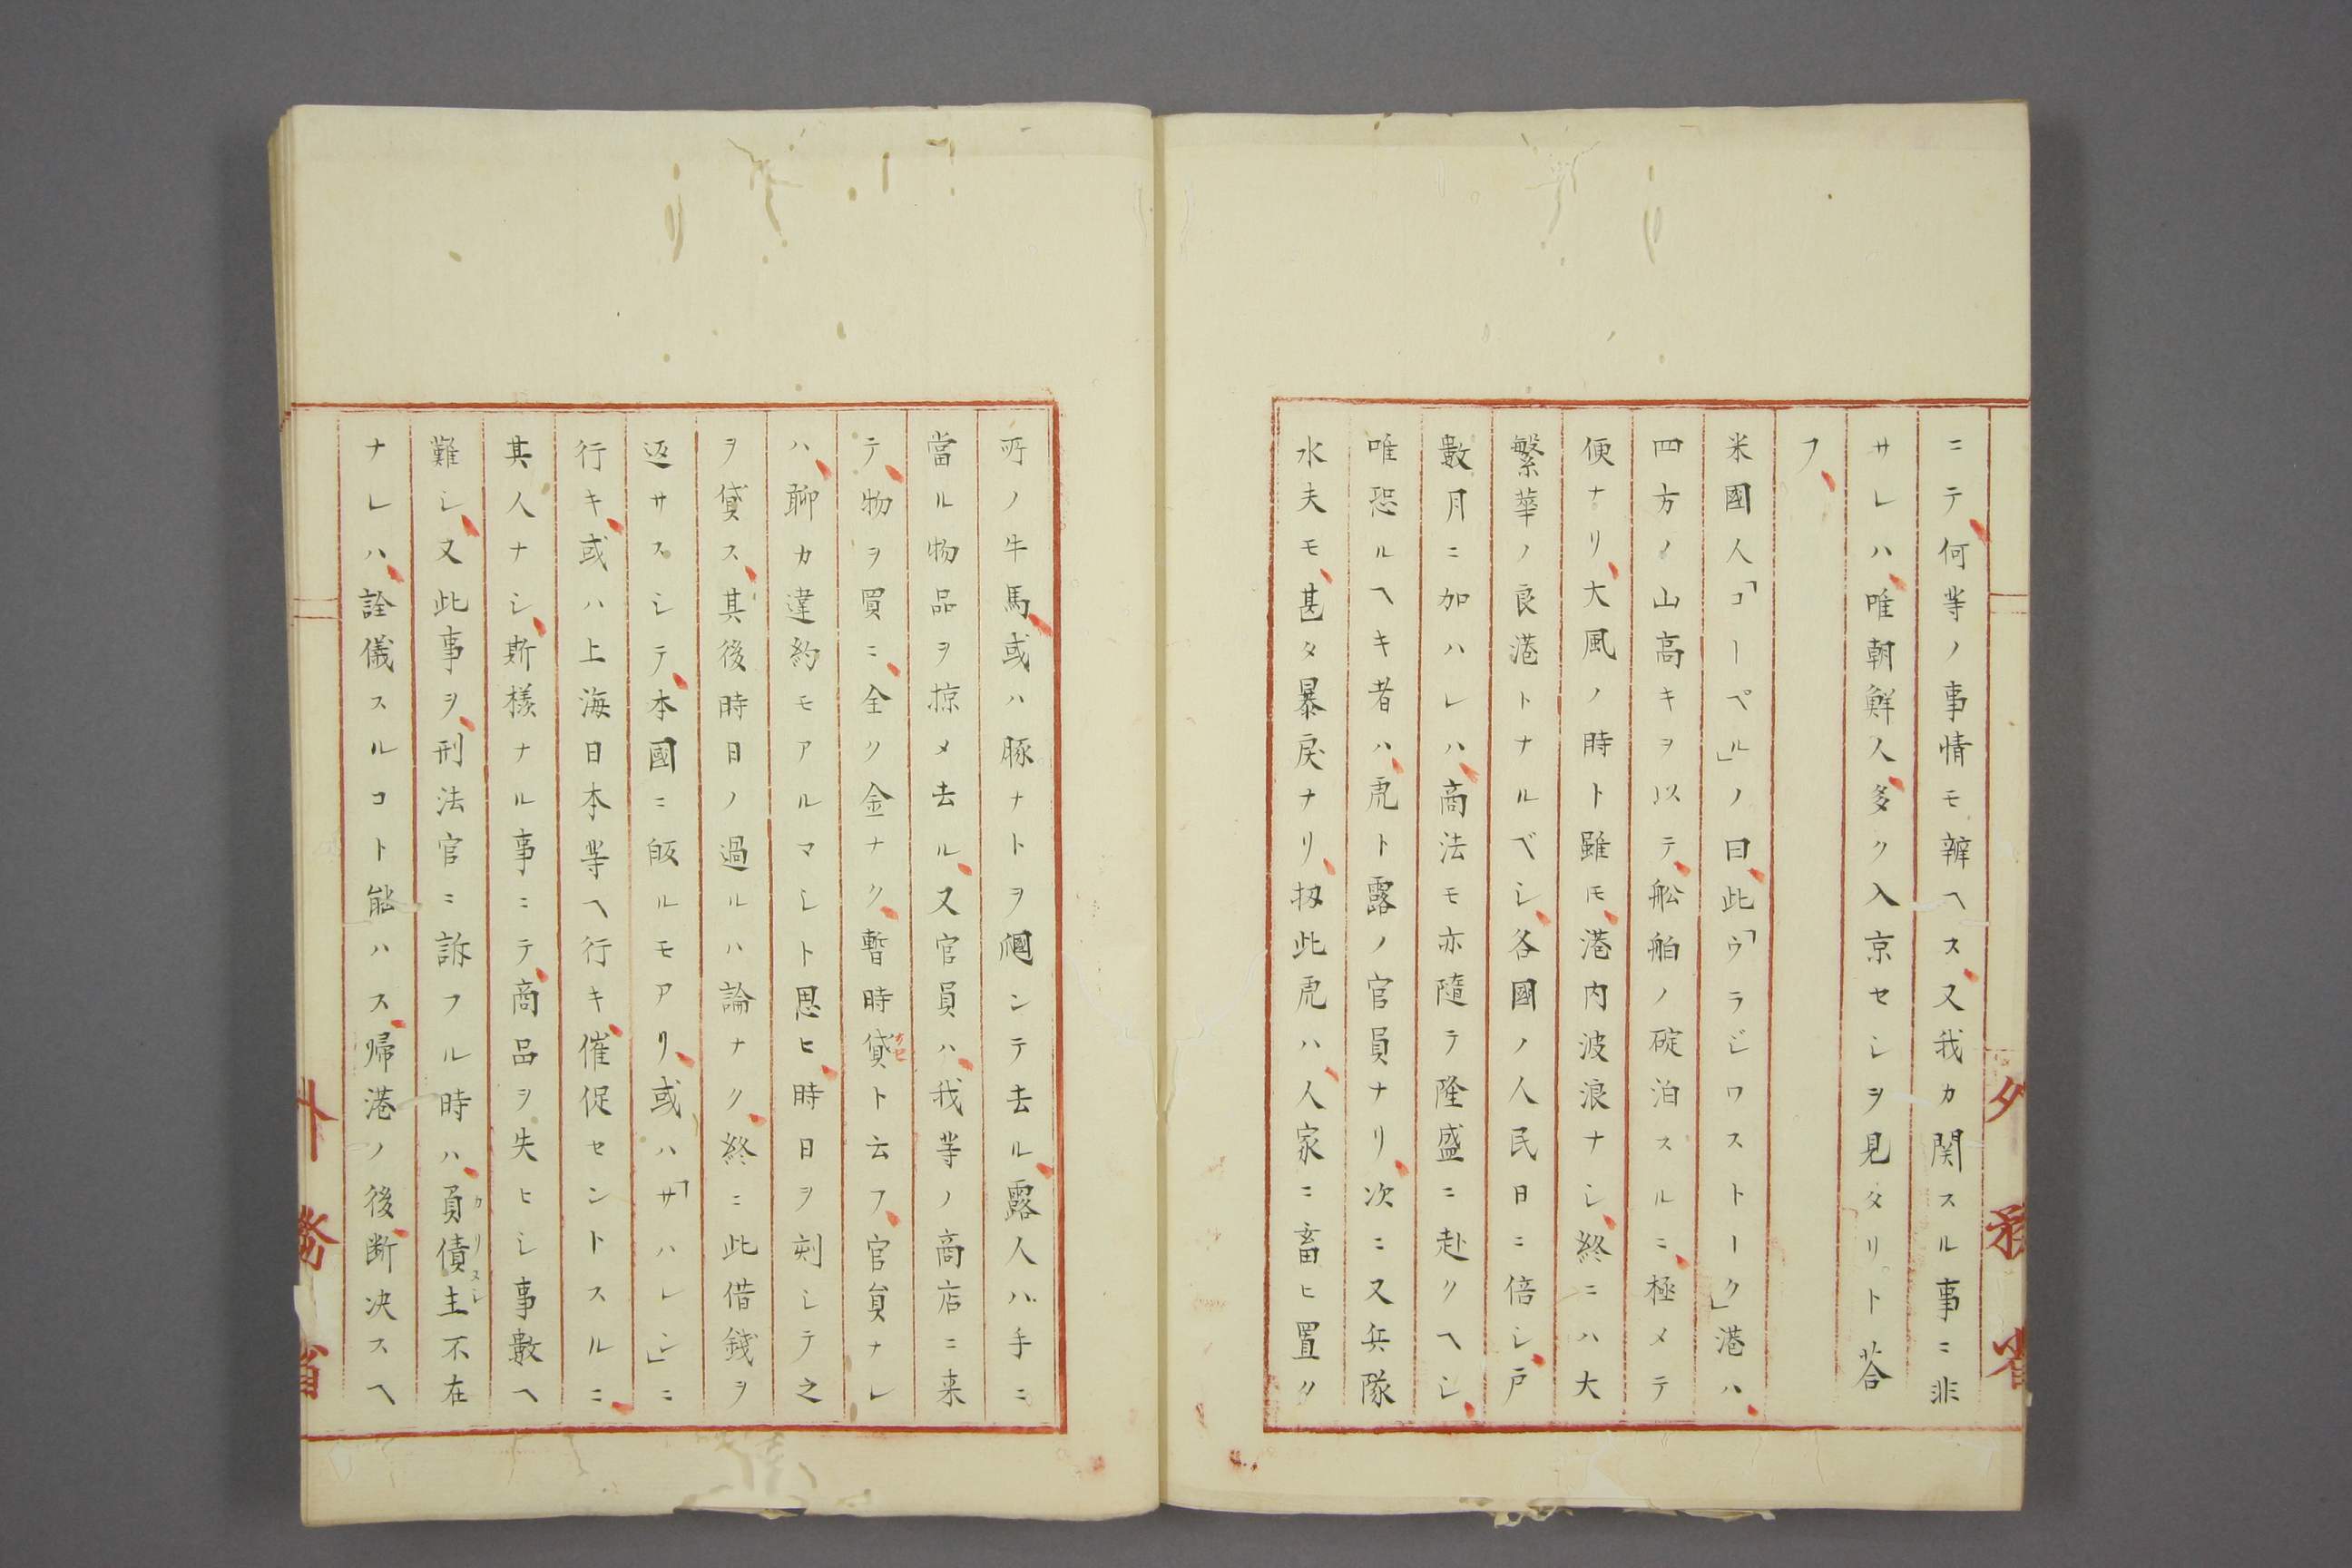 ニテ、何等ノ事情モ辨ヘス、又我カ関スル事ニ非
サレハ、唯朝鮮人、多ク入京セシヲ見タリト荅
フ、
米國人「コーペル」ノ曰、此「ウラジワストーク」港ハ、
四方ノ山高キヲ以テ、舩舶ノ碇泊スルニ、極メテ
便ナリ、大風ノ時ト雖モ、港内波浪ナシ、終ニハ大
繁華ノ良港トナルベシ、各國ノ人民日ニ倍シ、戸
數月ニ加ハレハ、商法モ亦隨テ隆盛ニ赴クヘシ、
唯恐ルヘキ者ハ、虎ト露ノ官員ナリ、次ニ又兵隊
水夫モ、甚タ暴戻ナリ、扨此虎ハ、人家ニ畜ヒ置ク
所ノ牛馬、或ハ豚ナトヲ
ンテ去ル、露人ハ手ニ
當ル物品ヲ掠メ去ル、又官員ハ、我等ノ商店ニ来
テ、物ヲ買ニ、全ク金ナク、暫時貸ト云フ、官員ナレ
ハ、聊カ違約モアルマシト思ヒ、時日ヲ刻シテ之
ヲ貸ス、其後時日ノ過ルハ論ナク、終ニ此借錢ヲ
返サスシテ、本國ニ皈ルモアリ、或ハ「サハレン」ニ
行キ、或ハ上海日本等ヘ行キ、催促セントスルニ、
其人ナシ、斯樣ナル事ニテ、商品ヲ失ヒシ事數ヘ
難シ、又此事ヲ、刑法官ニ訴フル時ハ、負債主不在
カリヌシ
ナレハ、詮儀スルコト能ハス、帰港ノ後、断决スヘ
外務省